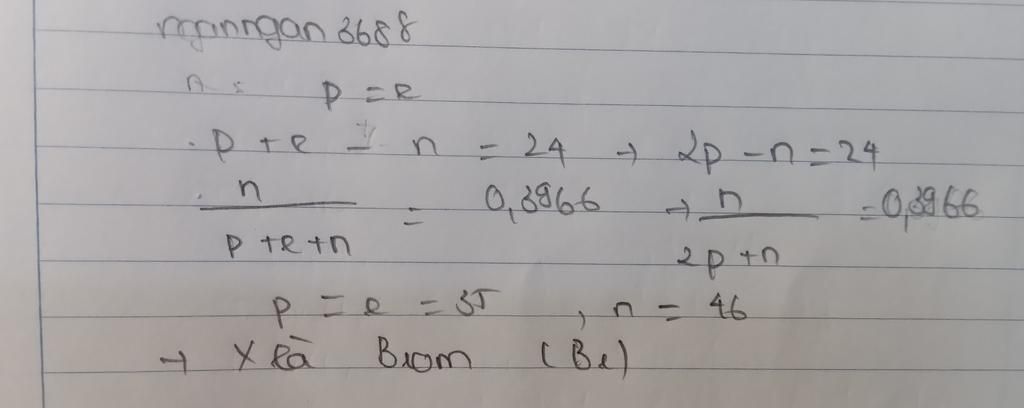 nganngan3688
p = e
. p + e - n = 24 → 2p - n = 24
. n / p + e + n = 0,3966 → n / 2p + n = 0,3966
p = e = 35 , n = 46
→ X là Brom (Br)